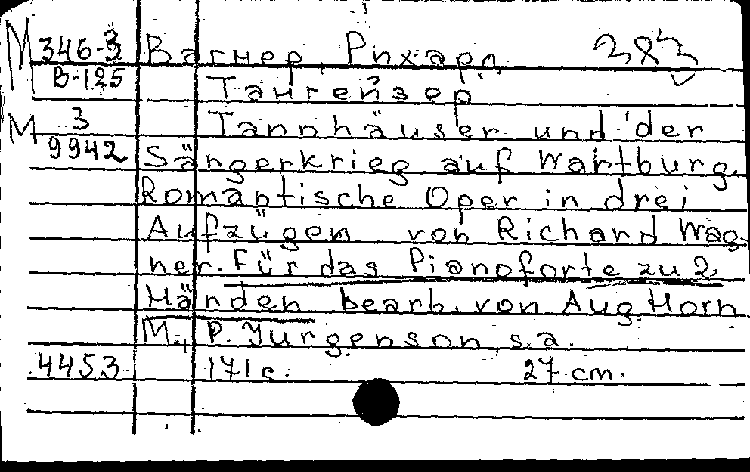 М 346-3 Вагнер, Рихард. 383
В-125 Тангейзер.
М 3 Tannhäuser und der
9942 Sängerkrieg auf Wartburg.
Romantische Oper in drei
Aufzügen von Richard Wag
ner. Für das Pianoforte zu 2
Händen bearb. von Aug Horn
M., P. Jurgenson, s.a.
4453 171 c. 27 cm.